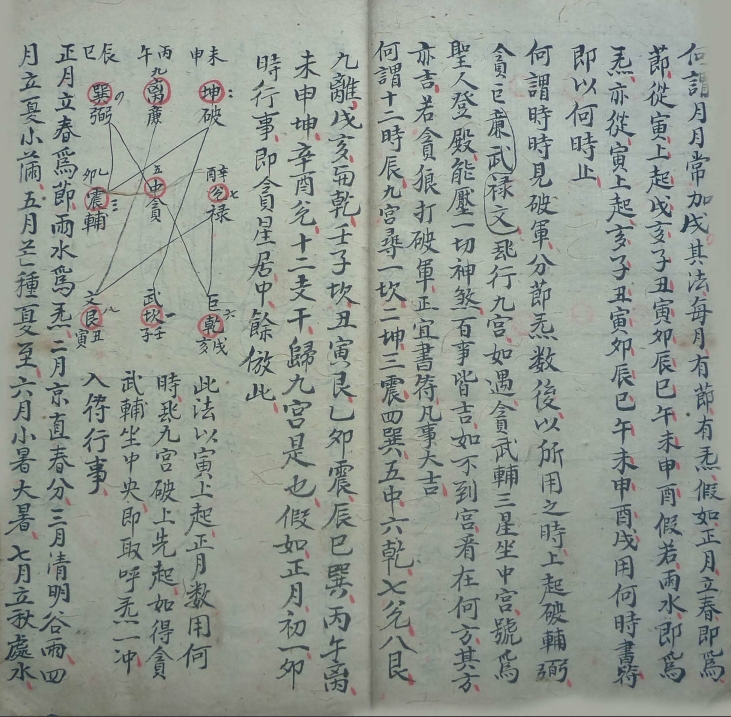 何謂月月常加戌其法每月有節有炁假如正月立春即為
節從寅上起戌亥子丑寅卯辰巳午未申酉假若雨水即為
炁亦從寅上起亥子丑寅卯辰巳午未申酉戌用何時書符
即以何時止
何謂時時見破軍分節炁数後以所用之時上起破輔弼
貪巨亷武禄文飛行九宮如遇貪武輔三星坐中宮號為
聖人登殿能壓一切神煞百事皆吉如不到宮看在何方其方
亦吉若貪狼打破軍正宜書符凡事大吉
何謂十二時辰九宮尋一坎二坤三震四巽五中六乾七兊八艮
九離戌亥乾壬子坎丑寅艮乙卯震辰巳巽丙午离
未申坤辛酉兊十二支干歸九宮是也假如正月初一卯
時行事即貪星居中餘倣此
未申
坤破
二
丙午
九离亷
辰巳
巽弼
酉辛
七
兊禄
五
中貪
乙卯
三
震輔
巨乾
六
戌亥
武坎
一
壬子
文艮
八
丑寅
此法以寅上起正月数用何
時飛九宮破上先起如得貪
武輔坐中央即取呼炁一冲
入符行事
正月立春為節雨水為炁二月京直春分三月清明谷雨四
月立夏小滿五月芒種夏至六月小暑大暑七月立秋處水